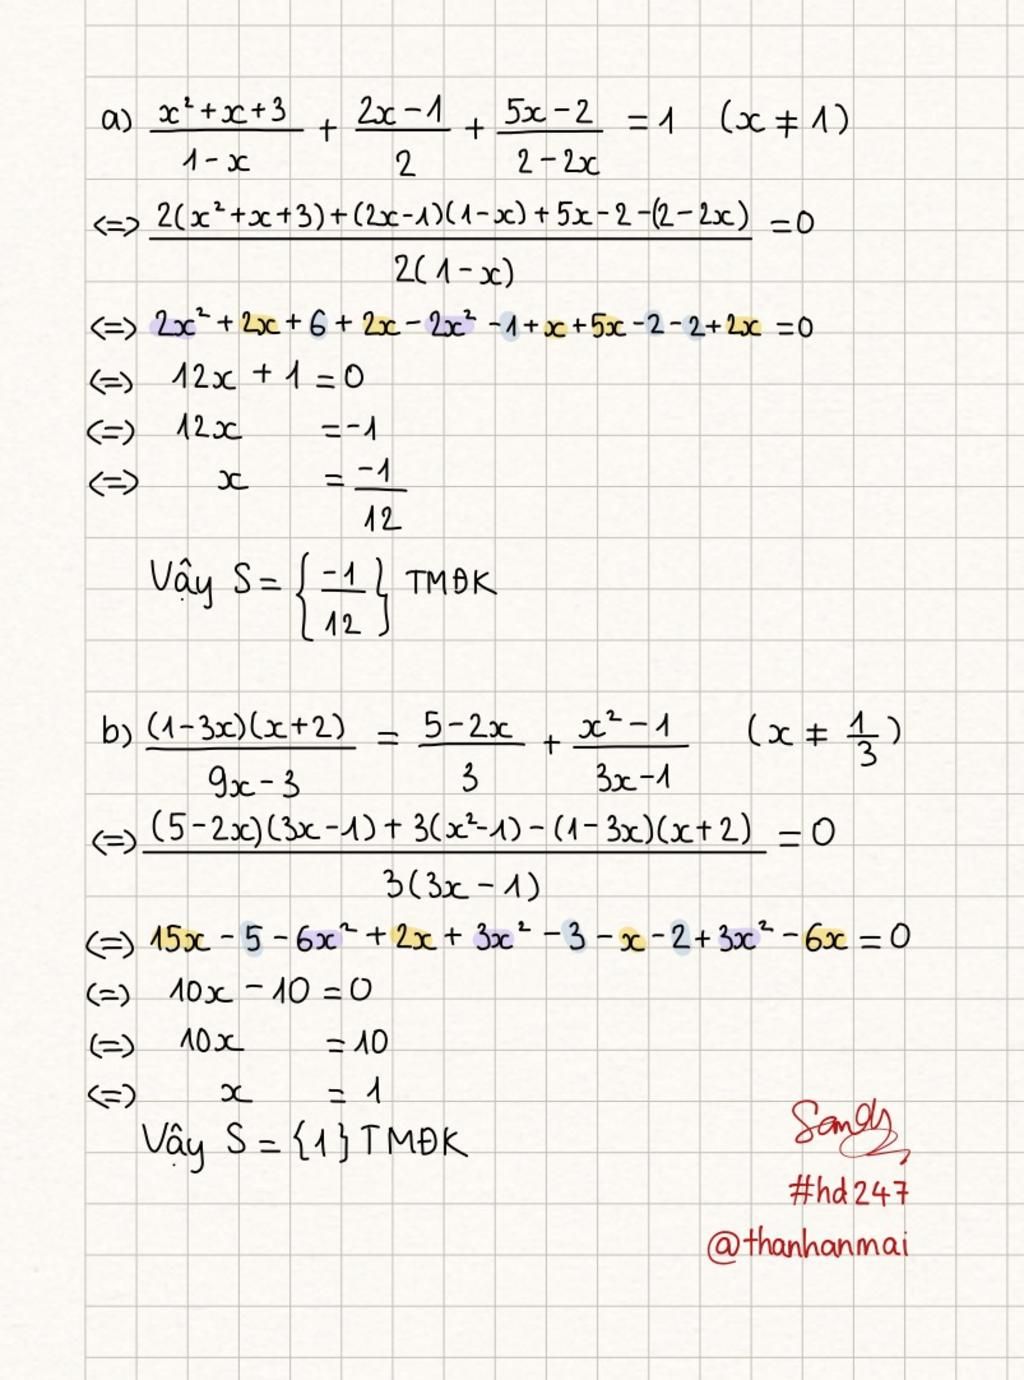 a) (x² + x + 3)/(1 - x) + (2x - 1)/2 + (5x - 2)/(2 - 2x) = 1 (x ≠ 1)
<=> (2(x² + x + 3) + (2x - 1)(1 - x) + 5x - 2 - (2 - 2x))/(2(1 - x)) = 0
<=> 2x² + 2x + 6 + 2x - 2x² - 1 + x + 5x - 2 - 2 + 2x = 0
<=> 12x + 1 = 0
<=> 12x = -1
<=> x = -1/12
Vậy S = {-1/12} TMĐK
b) ((1 - 3x)(x + 2))/(9x - 3) = (5 - 2x)/3 + (x² - 1)/(3x - 1) (x ≠ 1/3)
<=> ((5 - 2x)(3x - 1) + 3(x² - 1) - (1 - 3x)(x + 2))/(3(3x - 1)) = 0
<=> 15x - 5 - 6x² + 2x + 3x² - 3 - x - 2 + 3x² - 6x = 0
<=> 10x - 10 = 0
<=> 10x = 10
<=> x = 1
Vậy S = {1} TMĐK
Sandy
#hd247
@thanhanmai